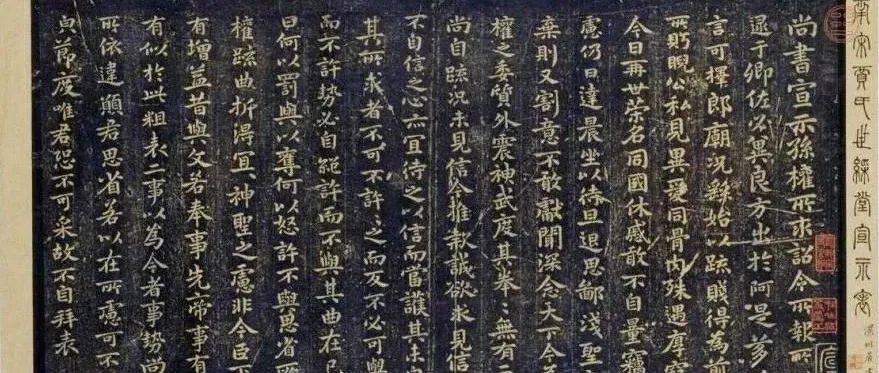 南宋賈氏世綵堂宣示表
尚書宣示孫權所求詔令所報所
逮于卿佐必冀良方出於阿是芻
言可擇郎廟況繇始以疏賤得為前
所眄睨公私見異愛同骨肉殊遇厚寵
今日再世榮名同國休慼敢不自量竊
慮仍日達晨坐以待旦退思鄙淺聖
棄則又割意不敢獻聞深念天下今
權之委質外震神武度其拳〻無有二
尚自疏況未見信今推款誠欲求見信
不自信之心亦宜待之以信而當護其未
其所求者不可不許〻之而反不必可與
而不許勢必自絕許而不與其曲在己
曰何以罰與以奪何以怒許不與思省所
權疏曲折得宜〻神聖之慮非今臣下
有增益昔與文若奉事先帝事有
有似於此粗表二事以為今者事勢尚
所依違願君思省若以在所慮可不
貞節度唯君恐不可采故不自拜表